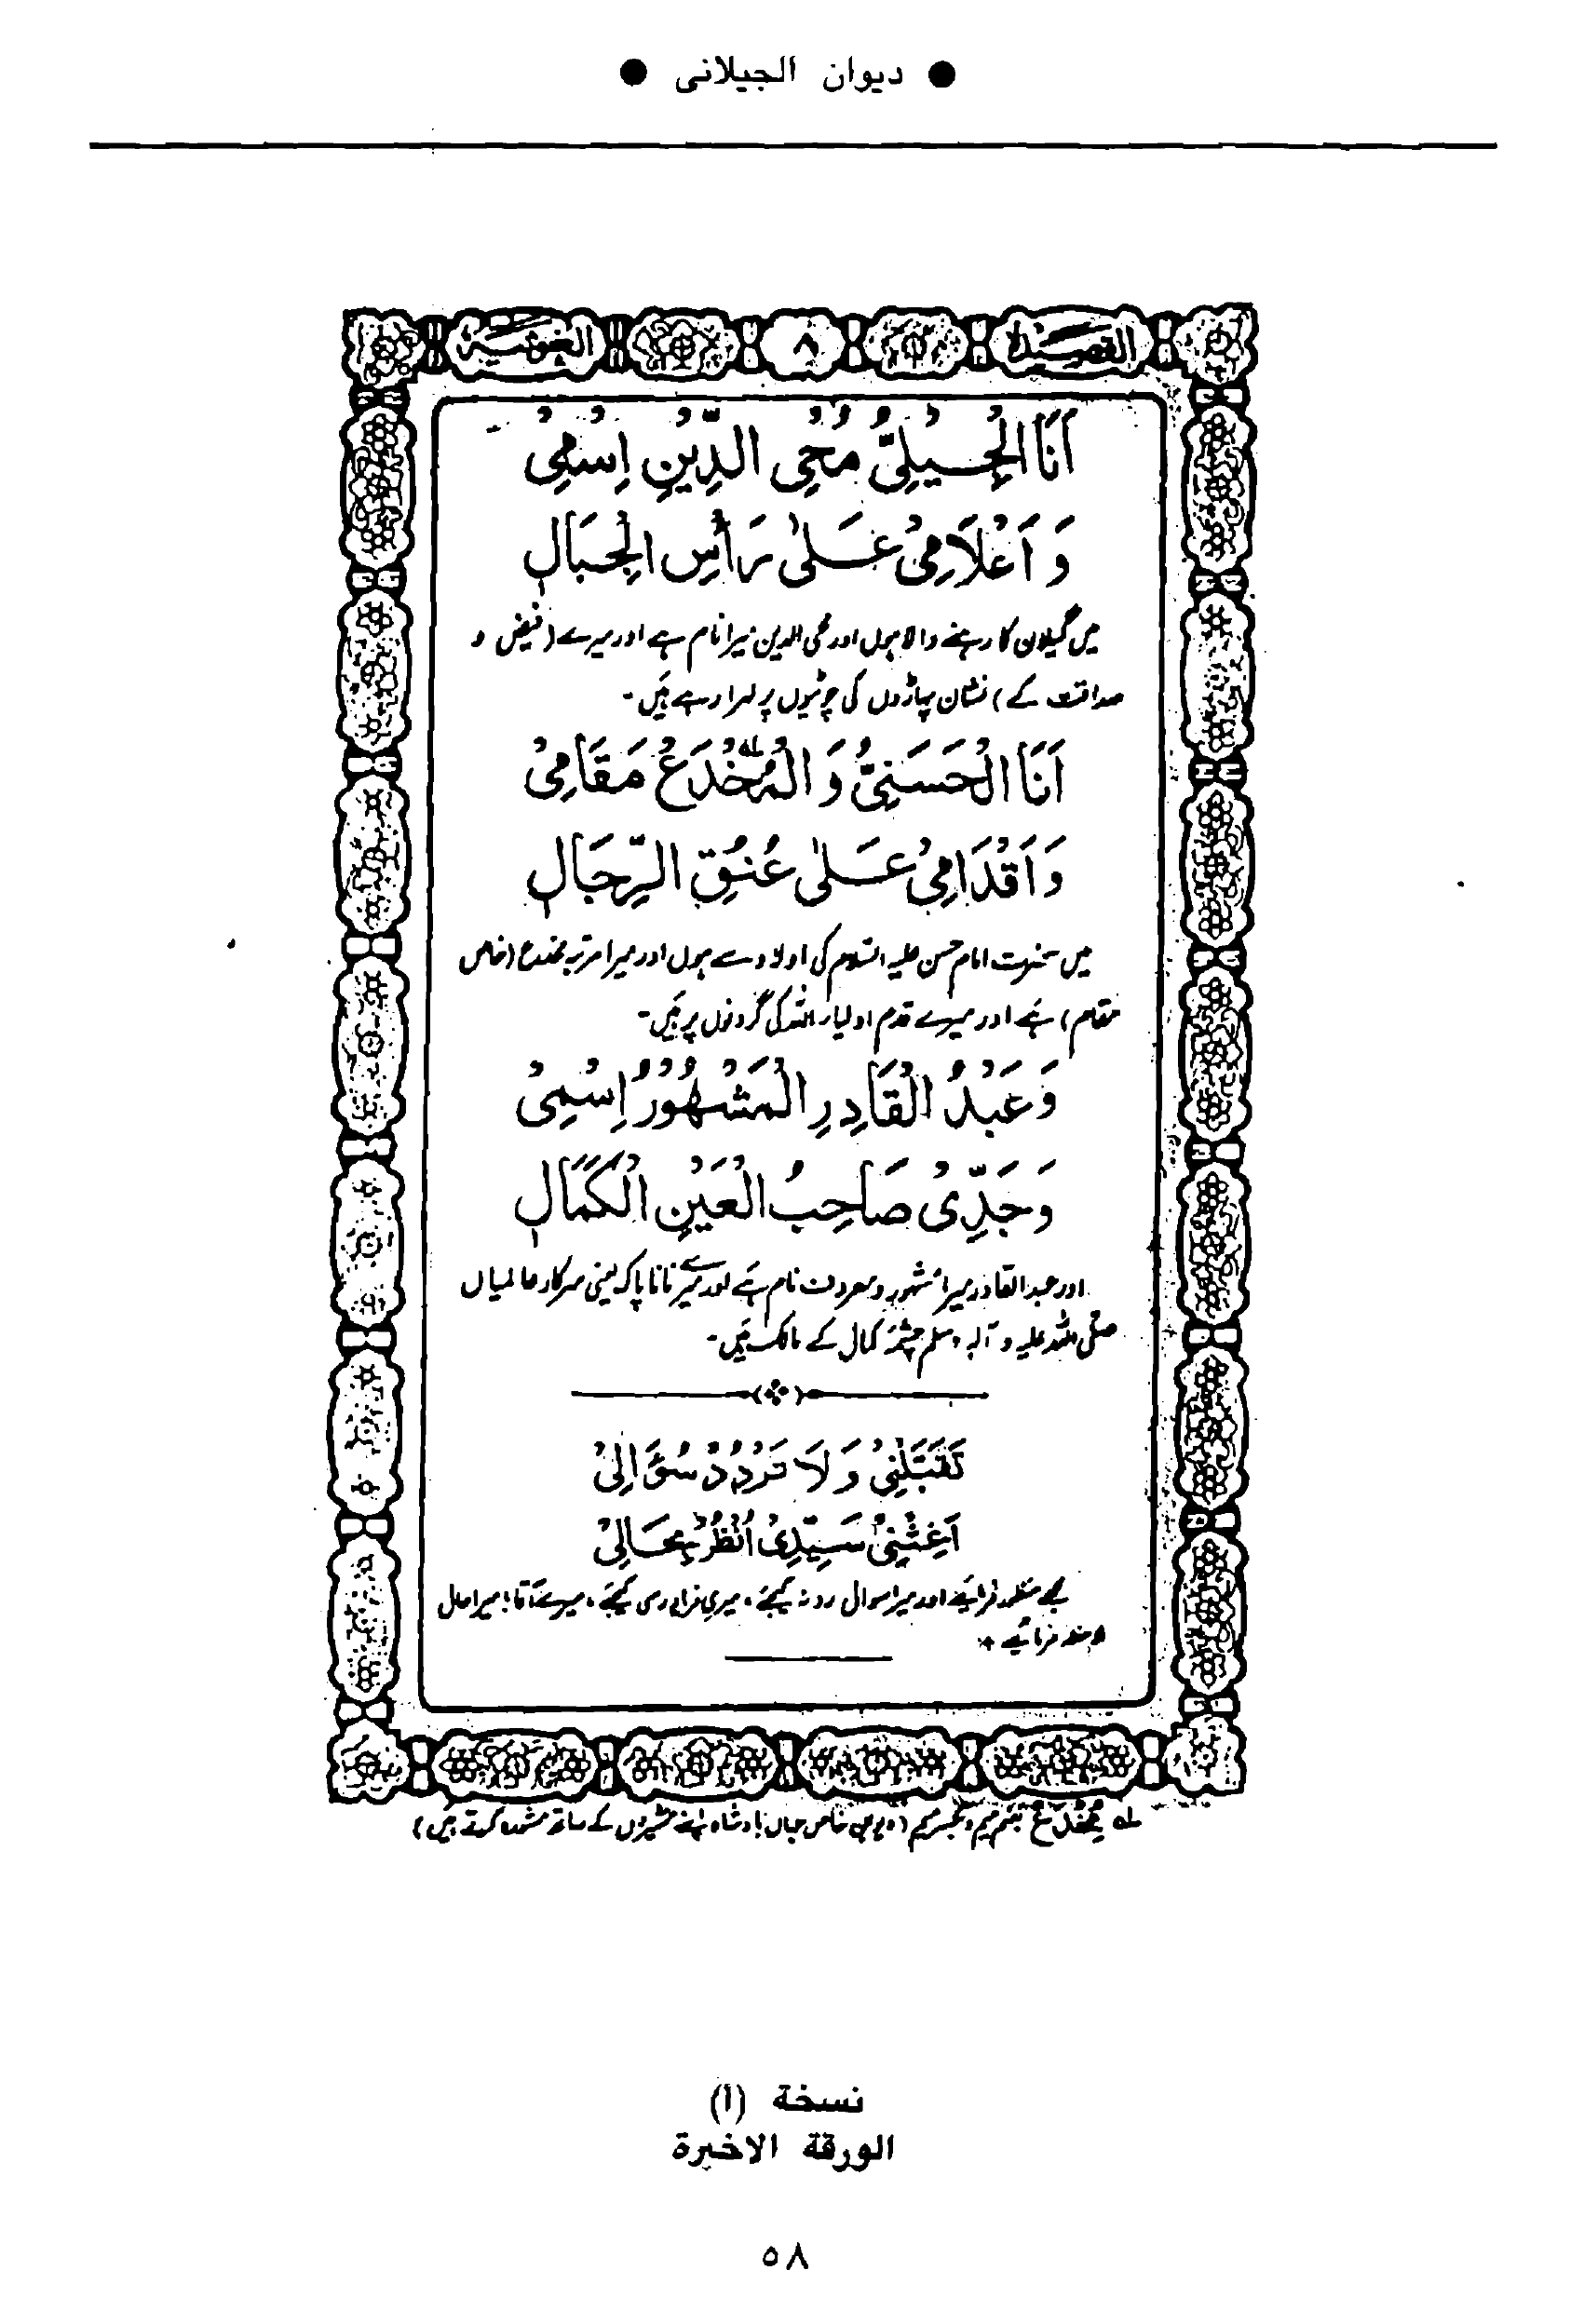 ● ديوان الجيلانى ●
القصيدة ٨ الغوثية
اَنَا الْجِيْلِيُّ مُحْيِ الدِّيْنِ اِسْمِيْ
وَ اَعْلَامِيْ عَلٰى رَأْسِ الْجِبَالِ
میں گیلان کا رہنے والا ہوں اور محی الدین میرا نام ہے اور میرے (فیض و
صداقت کے) نشان پہاڑوں کی چوٹیوں پر لہرا رہے ہیں۔
اَنَا الْحَسَنِيُّ وَ الْمُخْدَعُ مَقَامِيْ
وَ اَقْدَامِيْ عَلٰى عُنُقِ الرِّجَالِ
میں حضرت امام حسن علیہ السلام کی اولاد سے ہوں اور میرا مرتبہ مخدع (خاص
مقام) ہے اور میرے قدم اولیاء اللہ کی گردنوں پر ہیں۔
وَ عَبْدُ الْقَادِرِ الْمَشْهُوْرُ اِسْمِيْ
وَ جَدِّيْ صَاحِبُ الْعَيْنِ الْكَمَالِ
اور عبدالقادر میرا مشہور و معروف نام ہے اور میرے نانا پاک یعنی سرکار عالمیاں
صلی اللہ علیہ و آلہ وسلم چشمۂ کمال کے مالک ہیں۔
تَقَبَّلْنِيْ وَ لَا تَرْدُدْ سُؤَالِيْ
اَغِثْنِيْ سَيِّدِيْ اُنْظُرْ بِحَالِيْ
مجھے منظور فرمایئے اور میرا سوال رد نہ کیجئے، میری فریاد رسی کیجئے، میرے آقا! میرا حال
ملاحظہ فرمائیے
لہ مُخْدَعْ بضم میم و بکسر میم (وہ خاص جہاں بادشاہ اپنے مشیروں کے ساتھ مشورہ کرتے ہیں)
نسخة (ا)
الورقة الاخيرة
٥٨